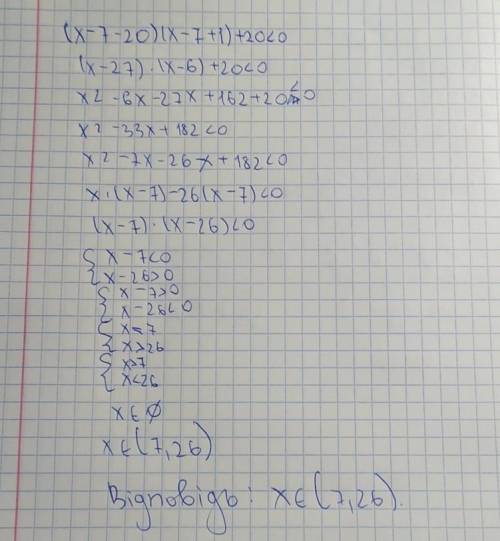 (x-7-20)(x-7+1)+20<0
(x-27)·(x-6)+20<0
x²-6x-27x+162+20<0
x²-33x+182<0
x²-7x-26x+182<0
x·(x-7)-26(x-7)<0
(x-7)·(x-26)<0
{ x-7<0
x-26>0
{ x-7>0
x-26<0
{ x<7
x>26
{ x>7
x<26
x∈∅
x∈(7,26)
Відповідь: x∈(7,26).